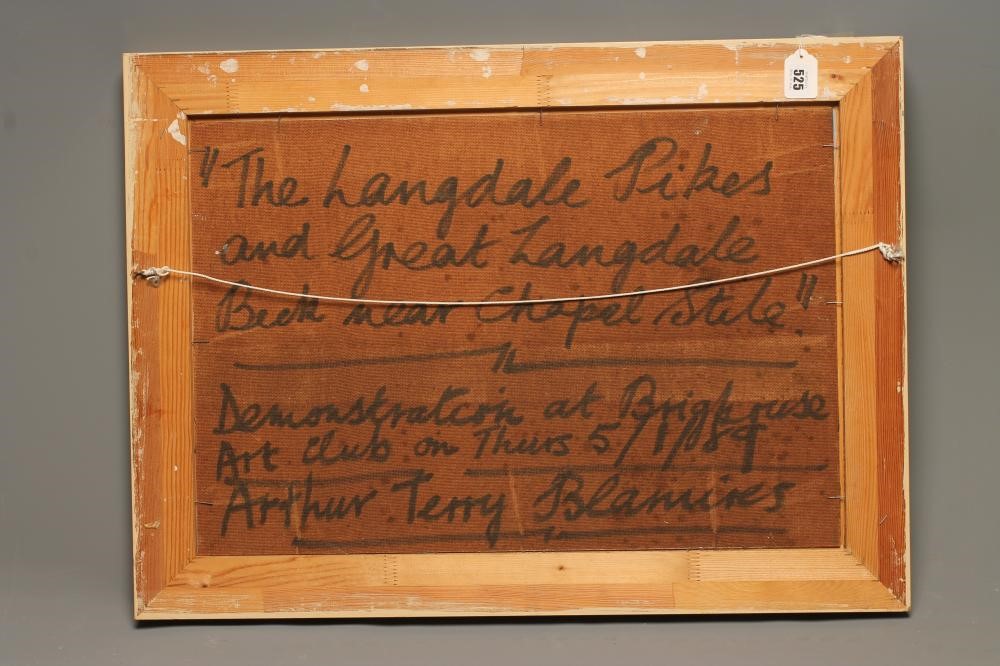 525
"The Langdale Pikes
and Great Langdale
Beck near Chapel Stile."
Demonstration at Brighouse
Art Club on Thurs 5/1/89
Arthur Terry Blamires